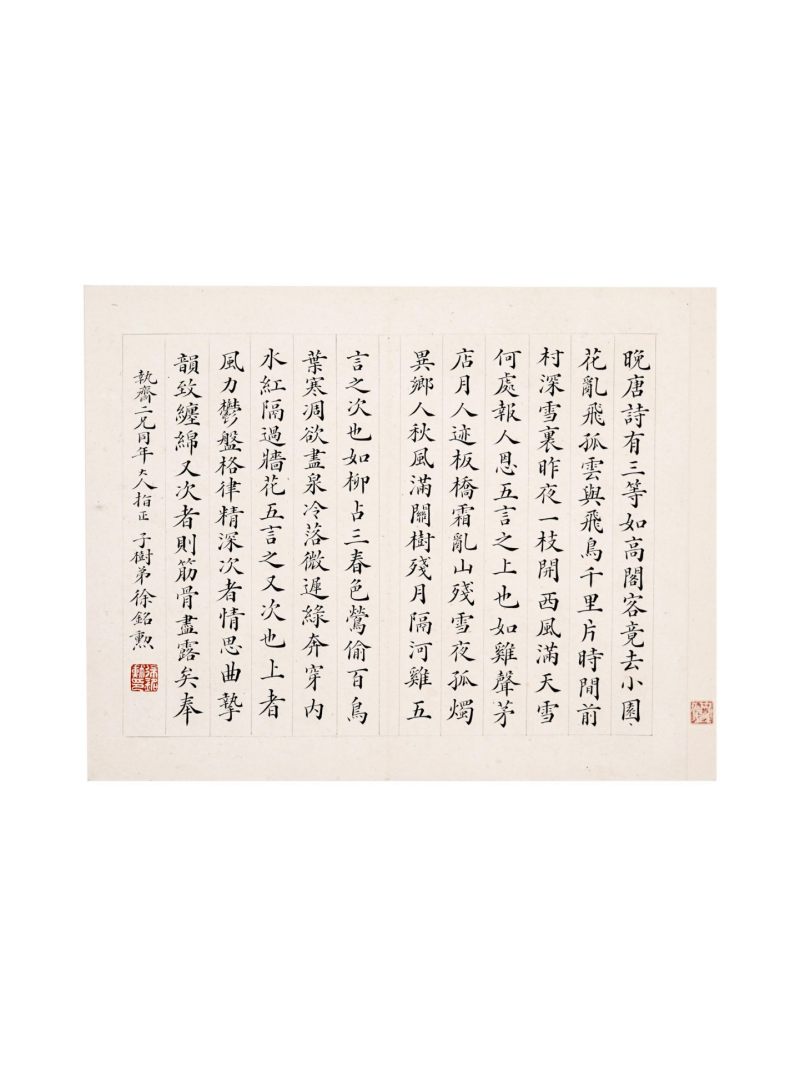 晚唐詩有三等如高閣客竟去小園
花亂飛孤雲與飛鳥千里片時間前
村深雪裏昨夜一枝開西風滿天雪
何處報人恩五言之上也如雞聲茅
店月人迹板橋霜亂山殘雪夜孤燭
異鄉人秋風滿關樹殘月隔河雞五
言之次也如柳占三春色鶯偷百鳥
葉寒凋欲盡泉冷落微遲綠奔穿內
水紅隔過牆花五言之又次也上者
風力鬱盤格律精深次者情思曲摯
韻致纏綿又次者則筋骨盡露矣奉
執齋二兄同年大人指正 子樹弟徐銘勲